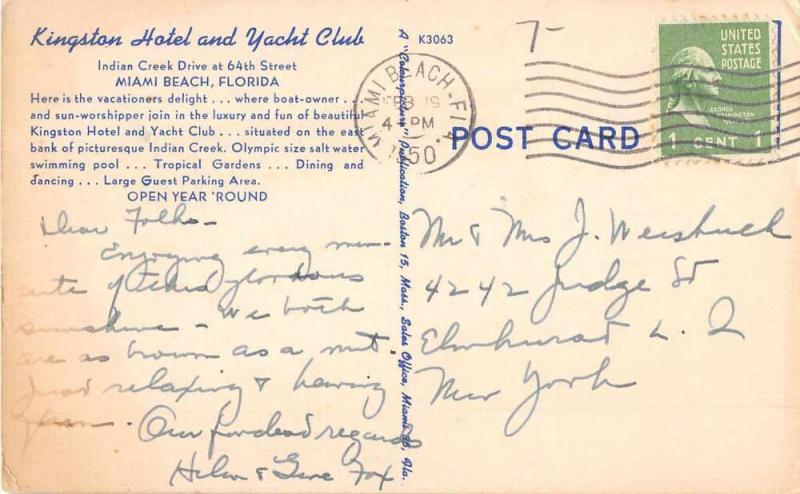 Kingston Hotel and Yacht Club
Indian Creek Drive at 64th Street
MIAMI BEACH, FLORIDA
Here is the vacationers delight . . . where boat-owner . . .
and sun-worshipper join in the luxury and fun of beautiful
Kingston Hotel and Yacht Club . . . situated on the east
bank of picturesque Indian Creek. Olympic size salt water
swimming pool . . . Tropical Gardens . . . Dining and
dancing . . . Large Guest Parking Area.
OPEN YEAR 'ROUND
Dear Folks -
Enjoying every min-
ute of this glorious
sunshine - We both
are as brown as a nut.
Just relaxing & having
fun. Our fondest regards
Helen & Gene Fox
A "Colourpicture" Publication, Boston 15, Mass., Sales Office, Miami 36, Fla.
K3063
MIAMI BEACH, FLA.
FEB 19
4 PM
1950
7-
POST CARD
UNITED
STATES
POSTAGE
GEORGE
WASHINGTON
1 CENT 1
Mr & Mrs J. Weisbuch
4242 Judge St
Elmhurst L. I
New York